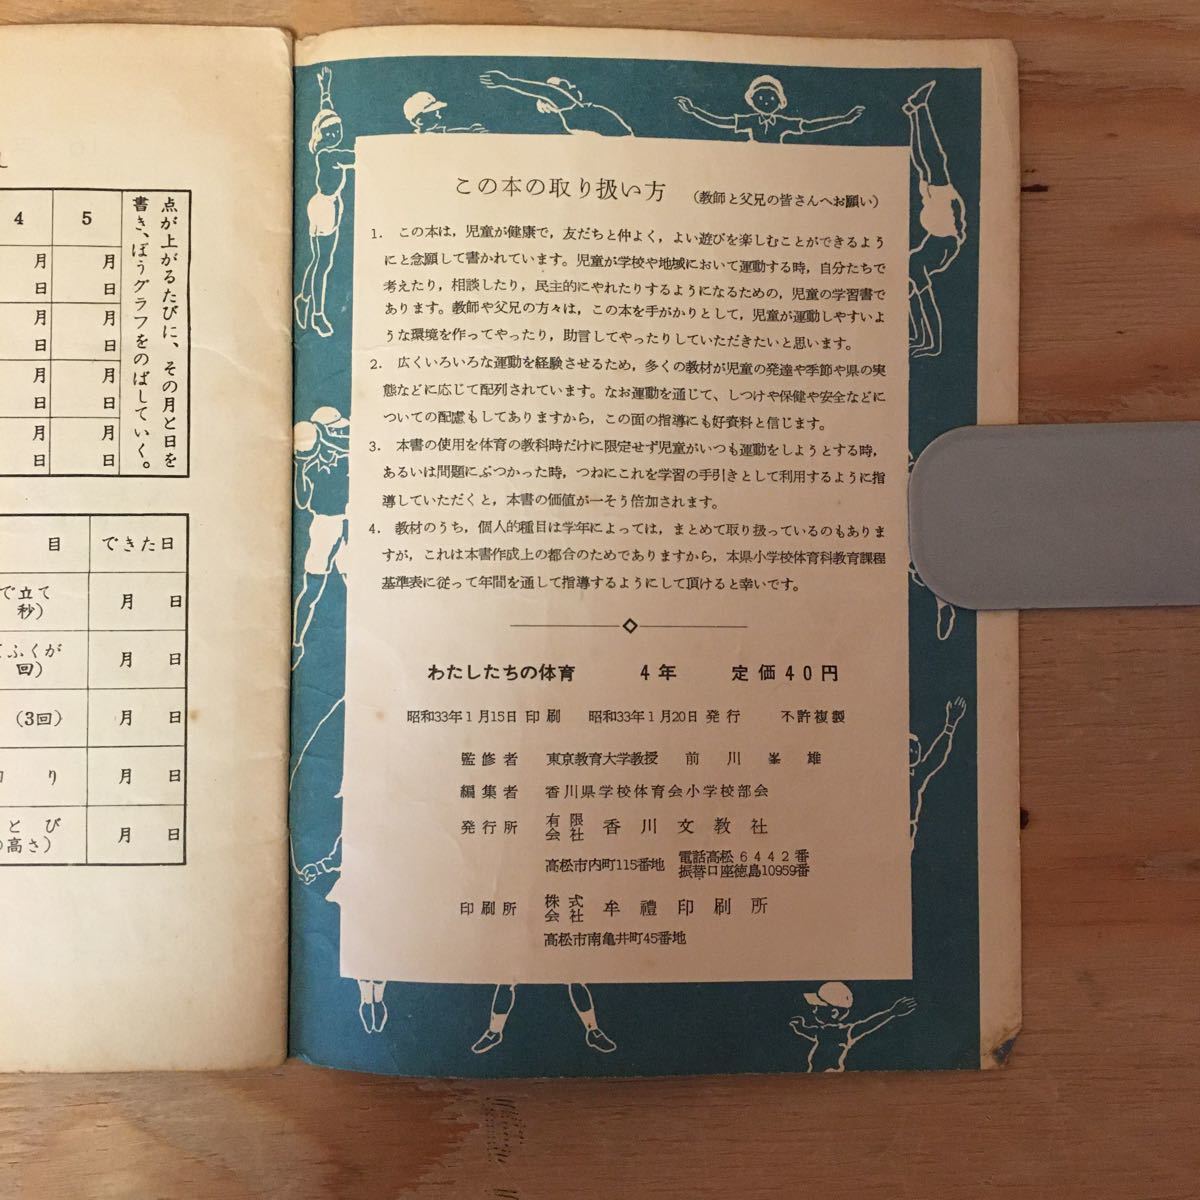 4 5
月 月
日 日
月 月
日 日
月 月
日 日
月 月
日 日
点が上がるたびに、その月と日を
書き、ぼうグラフをのばしていく。
目 できた日
で立て 月 日
秒)
ふくが 月 日
回)
(3回) 月 日
り 月 日
とび 月 日
の高さ)
この本の取り扱い方 (教師と父兄の皆さんへお願い)
1. この本は,児童が健康で,友だちと仲よく,よい遊びを楽しむことができるよう
にと念願して書かれています。児童が学校や地域において運動する時,自分たちで
考えたり,相談したり,民主的にやれたりするようになるための,児童の学習書で
あります。教師や父兄の方々は,この本を手がかりとして,児童が運動しやすいよ
うな環境を作ってやったり,助言してやったりしていただきたいと思います。
2. 広くいろいろな運動を経験させるため,多くの教材が児童の発達や季節や県の実
態などに応じて配列されています。なお運動を通じて,しつけや保健や安全などに
ついての配慮もしてありますから,この面の指導にも好資料と信じます。
3. 本書の使用を体育の教科時だけに限定せず児童がいつも運動をしようとする時,
あるいは問題にぶつかった時,つねにこれを学習の手引きとして利用するように指
導していただくと,本書の価値が一そう倍加されます。
4. 教材のうち,個人的種目は学年によっては,まとめて取り扱っているのもありま
すが,これは本書作成上の都合のためでありますから,本県小学校体育科教育課程
基準表に従って年間を通して指導するようにして頂けると幸いです。
わたしたちの体育 4年 定価40円
昭和33年1月15日 印刷 昭和33年1月20日 発行 不許複製
監修者 東京教育大学教授 前川峯雄
編集者 香川県学校体育会小学校部会
発行所 有限会社 香川文教社
高松市内町115番地 電話高松6442番
振替口座徳島10959番
印刷所 株式会社 牟禮印刷所
高松市南亀井町45番地